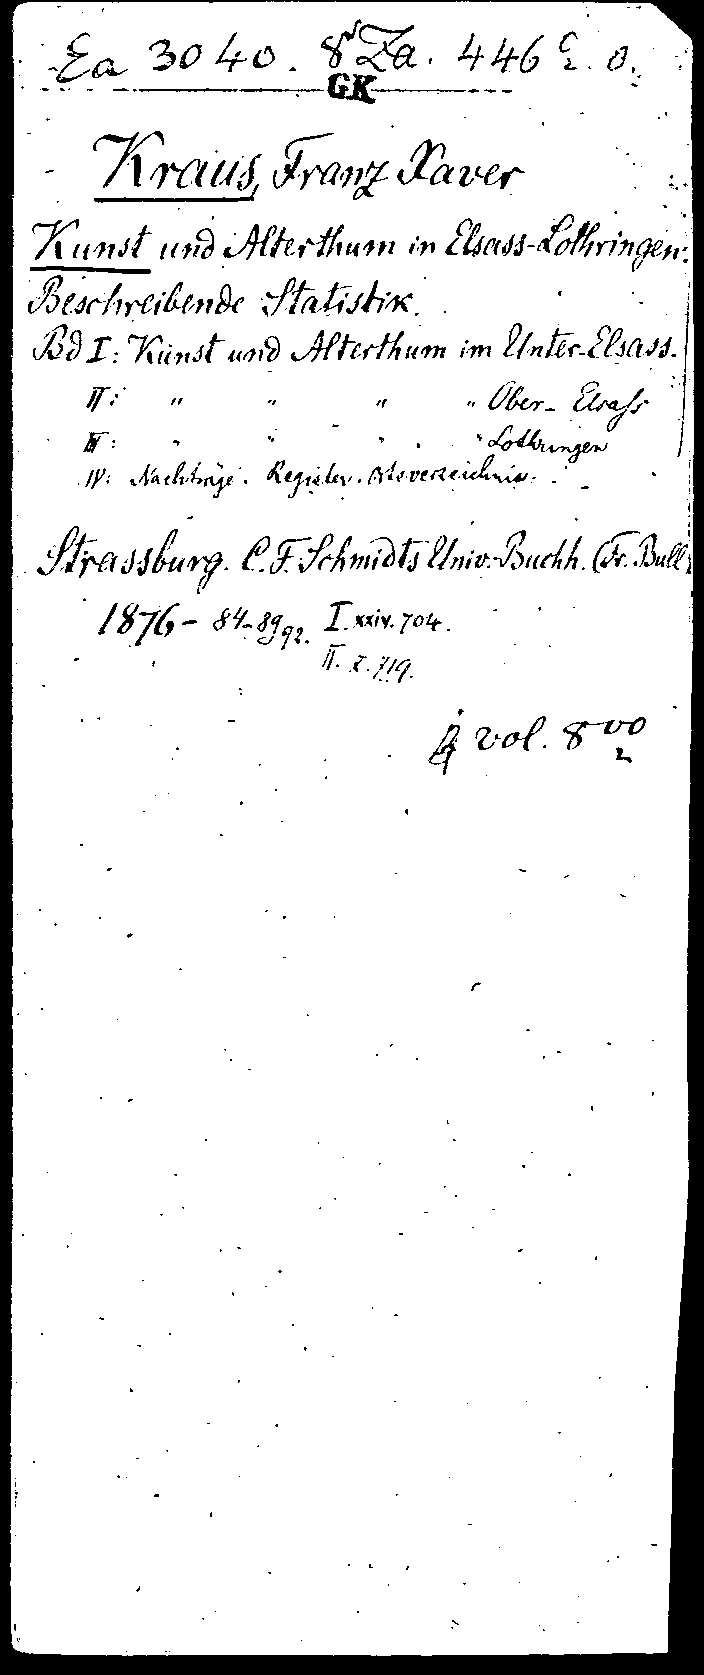 Ea 3040. 8° Za. 446 c/2. o.
GK
Kraus, Franz Xaver
Kunst und Alterthum in Elsass-Lothringen.
Beschreibende Statistik.
Bd I: Kunst und Alterthum im Unter-Elsass.
II: " " " " Ober-Elsass
III: " " " " Lothringen
IV: Nachträge. Register. Ortsverzeichnis.
Strassburg. C. F. Schmidts Univ.-Buchh. (Fr. Bull)
1876-84-89 92. I. XXIV. 704.
II. X. 719.
4 vol. 8vo
2